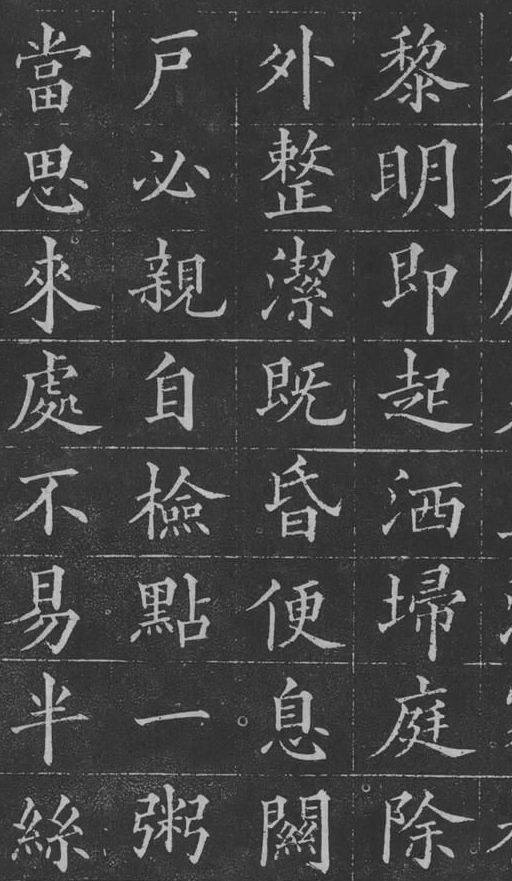 黎眀即起洒埽庭除
外整潔既昏便息關
戶必親自檢點一粥
當思來處不易半絲